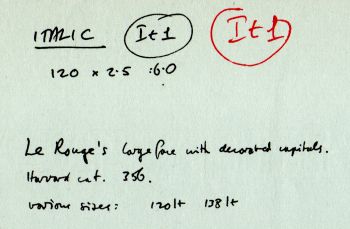 ITALIC It 1 It 1
120 × 2.5 :6.0
Le Rouge's large face with decorated capitals.
Harvard cat. 356.
various sizes: 120 It 138 It